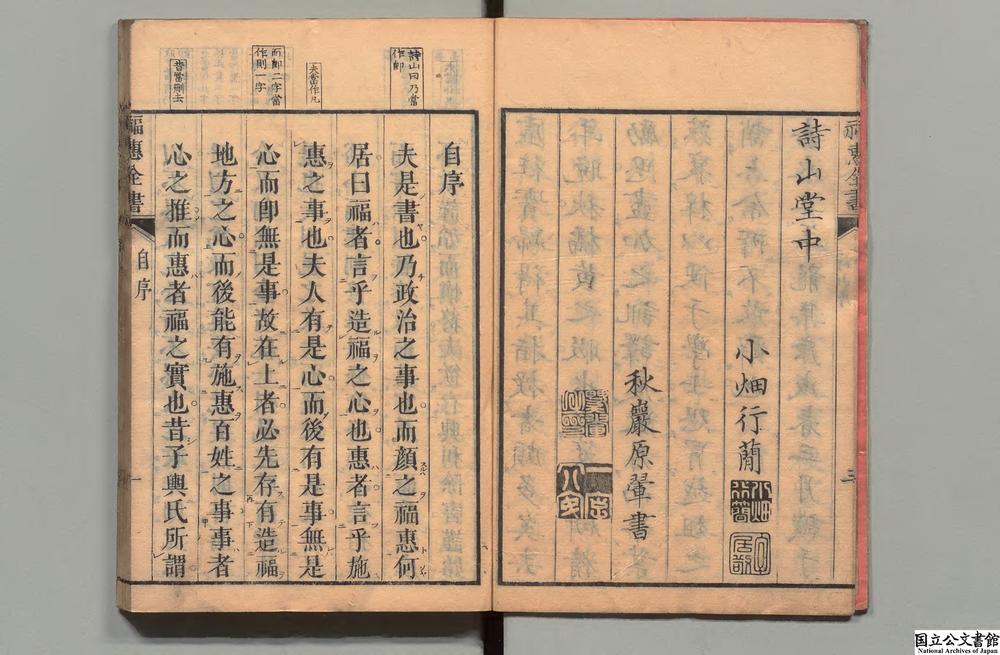 三
詩山堂中
小畑行簡
秋巖原翬書
詩山曰乃當
作即
夫當作凡
而即二字當
作則一字
昔當刪去
自序
夫是書也乃政治之事也而顏之福惠何
居曰福者言乎造福之心也惠者言乎施
惠之事也夫人有是心而後有是事無是
心而即無是事故在上者必先存有造福
地方之心而後能有施惠百姓之事事者
心之推而惠者福之實也昔子輿氏所謂
福惠全書
自序
一
国立公文書館
National Archives of Japan